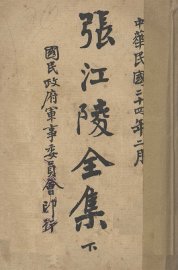 中華民國二十四年二月
張江陵全集 下
國民政府軍事委員會印發